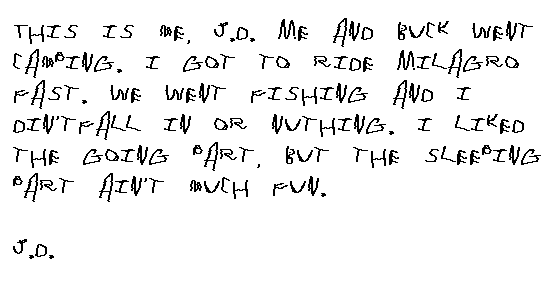 THIS IS ME, J.D. ME AND BUCK WENT
CAMPING. I GOT TO RIDE MILAGRO
FAST. WE WENT FISHING AND I
DIN'T FALL IN OR NUTHING. I LIKED
THE GOING PART, BUT THE SLEEPING
PART AIN'T MUCH FUN.
J.D.